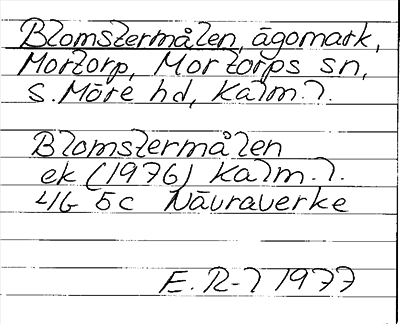 Blomstermålen, ägomark,
Mortorp, Mortorps sn,
S. Möre hd, Kalm. l.
Blomstermålen
ek (1976) Kalm. l.
4G 5c Näuraverke
E. R-l 1977